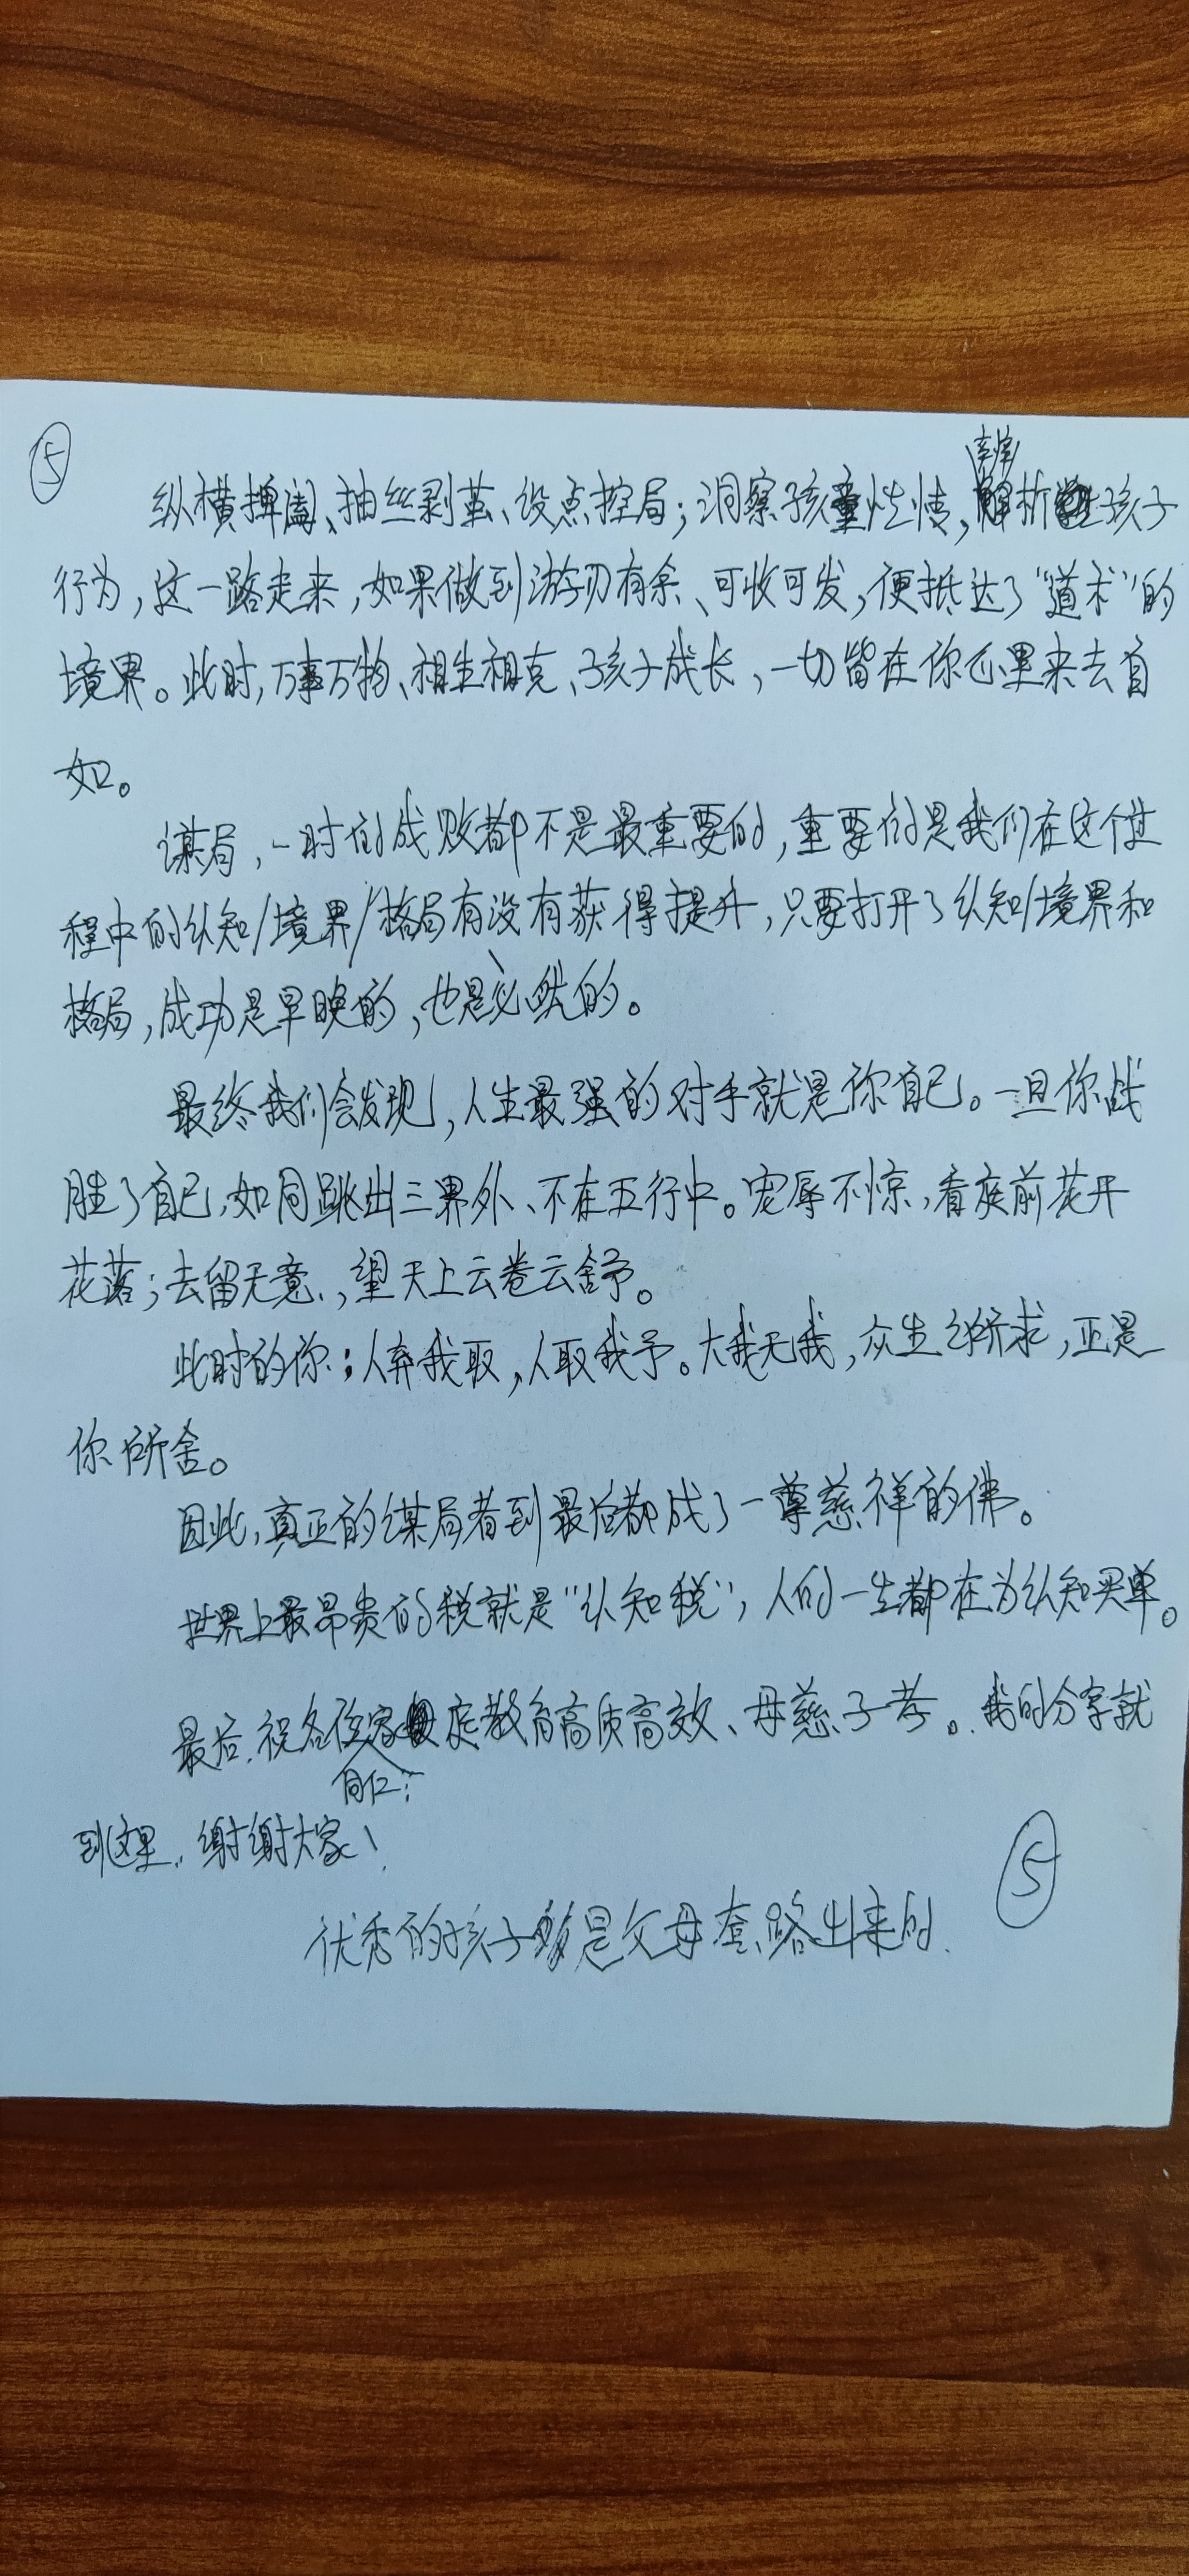 ⑤
纵横捭阖、抽丝剥茧、设点控局；洞察孩童性情，解析孩子
行为，这一路走来，如果做到游刃有余、可收可发，便抵达了“道术”的
境界。此时，万事万物、相生相克、孩子成长，一切皆在你心里来去自
如。
谋局，一时的成败都不是最重要的，重要的是我们在这个过
程中的认知/境界/格局有没有获得提升，只要打开了认知/境界和
格局，成功是早晚的，也是必然的。
最终我们会发现，人生最强的对手就是你自己。一旦你战
胜了自己，如同跳出三界外、不在五行中。宠辱不惊，看庭前花开
花落；去留无意，望天上云卷云舒。
此时的你：人弃我取，人取我予。大我无我，众生之所求，正是
你所舍。
因此，真正的谋局者到最后都成了一尊慈祥的佛。
世界上最昂贵的税就是“认知税”，人的一生都在为认知买单。
最后，祝各位同仁：家庭教育高质高效、母慈子孝。我的分享就
到这里，谢谢大家！
⑤
优秀的孩子是父母套路出来的.